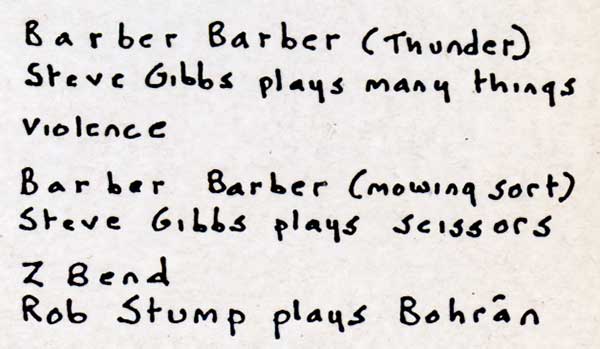 Barber Barber (Thunder)
Steve Gibbs plays many things
Violence
Barber Barber (mowing sort)
Steve Gibbs plays scissors
Z Bend
Rob Stump plays Bohrân